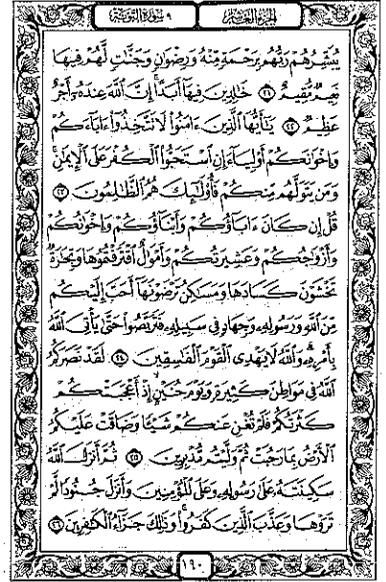 الجزء العاشر ٩ سورة التوبة
يُبَشِّرُهُمْ رَبُّهُم بِرَحْمَةٍ مِّنْهُ وَرِضْوَانٍ وَجَنَّاتٍ لَّهُمْ فِيهَا
نَعِيمٌ مُّقِيمٌ ٢١ خَالِدِينَ فِيهَا أَبَدًا إِنَّ اللَّهَ عِندَهُ أَجْرٌ
عَظِيمٌ ٢٢ يَا أَيُّهَا الَّذِينَ ءَامَنُوا لَا تَتَّخِذُوا ءَابَاءَكُمْ
وَإِخْوَانَكُمْ أَوْلِيَاءَ إِنِ اسْتَحَبُّوا الْكُفْرَ عَلَى الْإِيمَانِ
وَمَن يَتَوَلَّهُم مِّنكُمْ فَأُولَٰئِكَ هُمُ الظَّالِمُونَ ٢٣
قُلْ إِن كَانَ ءَابَاؤُكُمْ وَأَبْنَاؤُكُمْ وَإِخْوَانُكُمْ
وَأَزْوَاجُكُمْ وَعَشِيرَتُكُمْ وَأَمْوَالٌ اقْتَرَفْتُمُوهَا وَتِجَارَةٌ
تَخْشَوْنَ كَسَادَهَا وَمَسَاكِنُ تَرْضَوْنَهَا أَحَبَّ إِلَيْكُم
مِّنَ اللَّهِ وَرَسُولِهِ وَجِهَادٍ فِي سَبِيلِهِ فَتَرَبَّصُوا حَتَّىٰ يَأْتِيَ اللَّهُ
بِأَمْرِهِ وَاللَّهُ لَا يَهْدِي الْقَوْمَ الْفَاسِقِينَ ٢٤ لَقَدْ نَصَرَكُمُ
اللَّهُ فِي مَوَاطِنَ كَثِيرَةٍ وَيَوْمَ حُنَيْنٍ إِذْ أَعْجَبَتْكُمْ
كَثْرَتُكُمْ فَلَمْ تُغْنِ عَنكُمْ شَيْئًا وَضَاقَتْ عَلَيْكُمُ
الْأَرْضُ بِمَا رَحُبَتْ ثُمَّ وَلَّيْتُم مُّدْبِرِينَ ٢٥ ثُمَّ أَنزَلَ اللَّهُ
سَكِينَتَهُ عَلَىٰ رَسُولِهِ وَعَلَى الْمُؤْمِنِينَ وَأَنزَلَ جُنُودًا لَّمْ
تَرَوْهَا وَعَذَّبَ الَّذِينَ كَفَرُوا وَذَٰلِكَ جَزَاءُ الْكَافِرِينَ ٢٦
١٩٠